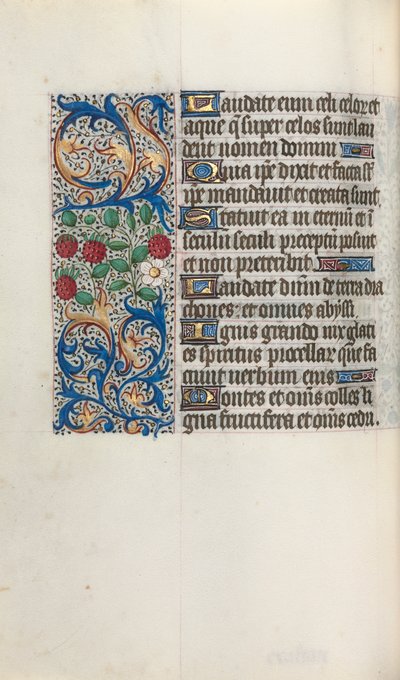 Laudate eum celi celoꝝ et
aque q̄ super celos sunt lau
dent nomen domini
Quia ip̄e dixit et facta st̄
ip̄e mandauit et creata sunt.
Statuit ea in eternū et ī
seculū seculi preceptū posuit
et non preteribit.
Laudate dn̄m de terra dra
chones: et omnes abyssi.
Ignis grando nix glati
es spiritus procellarū que fa
ciunt uerbum eius
Montes et om̄s colles li
gna fructifera et om̄s cedri.